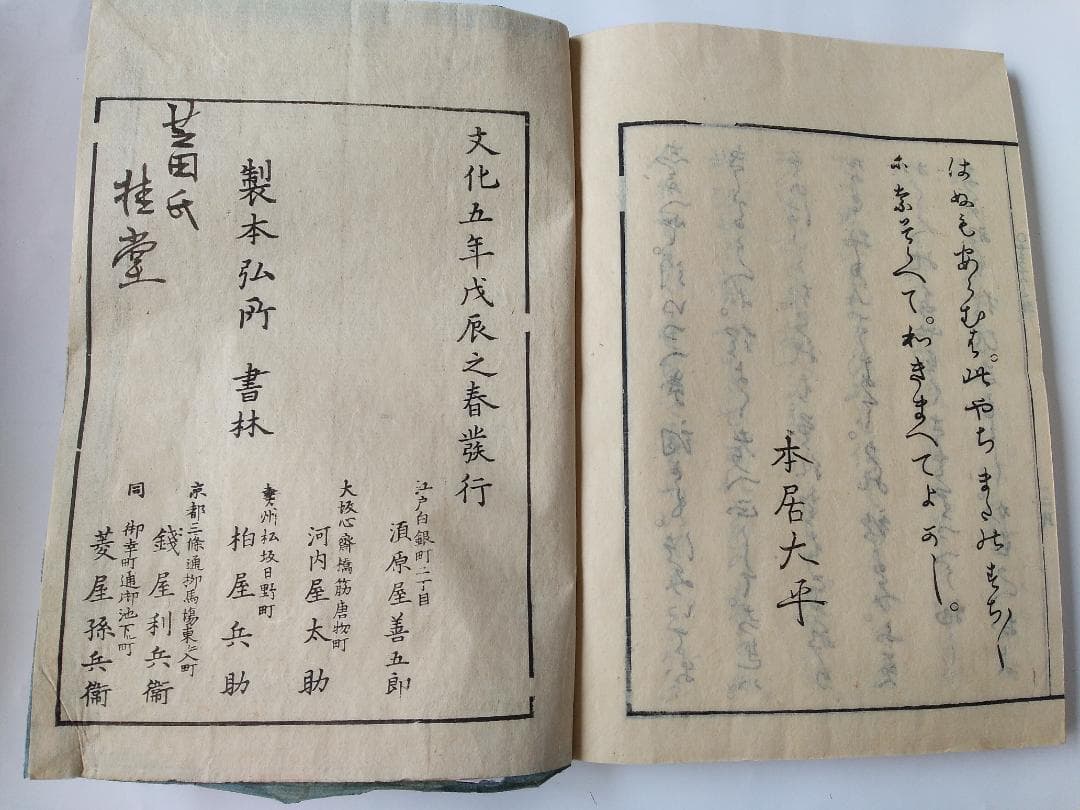 はぬもあらむを。此やちまたのすぢ〳〵
になそへて。わきまへてよかし。
本居大平
文化五年戊辰之春發行
江戸白銀町二丁目
須原屋善五郎
大坂心齋橋筋唐物町
河内屋太助
製本弘所 書林
勢州松坂日野町
柏屋兵助
京都三條通柳馬塲東ヘ入町
錢屋利兵衞
同 御幸町通御池下ル町
菱屋孫兵衞
田氏
桂堂